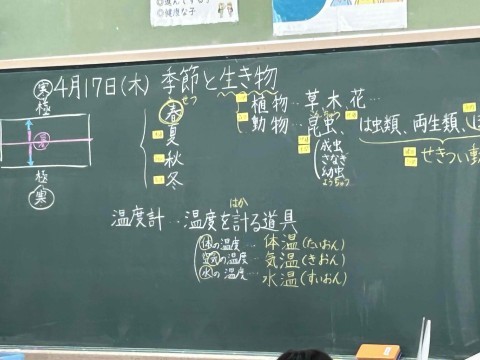 ◎健康な子
実 4月17日(木) 季節と生き物
せつ
極
暑
極
寒
春
夏
秋
冬
植物…草、木、花…
動物…昆虫、は虫類、両生類、
成虫
さなぎ
幼虫
ようちゅう
せきつい動
温度計…温度を計る道具
はか
体の温度…体温(たいおん)
空気の温度…気温(きおん)
水の温度…水温(すいおん)